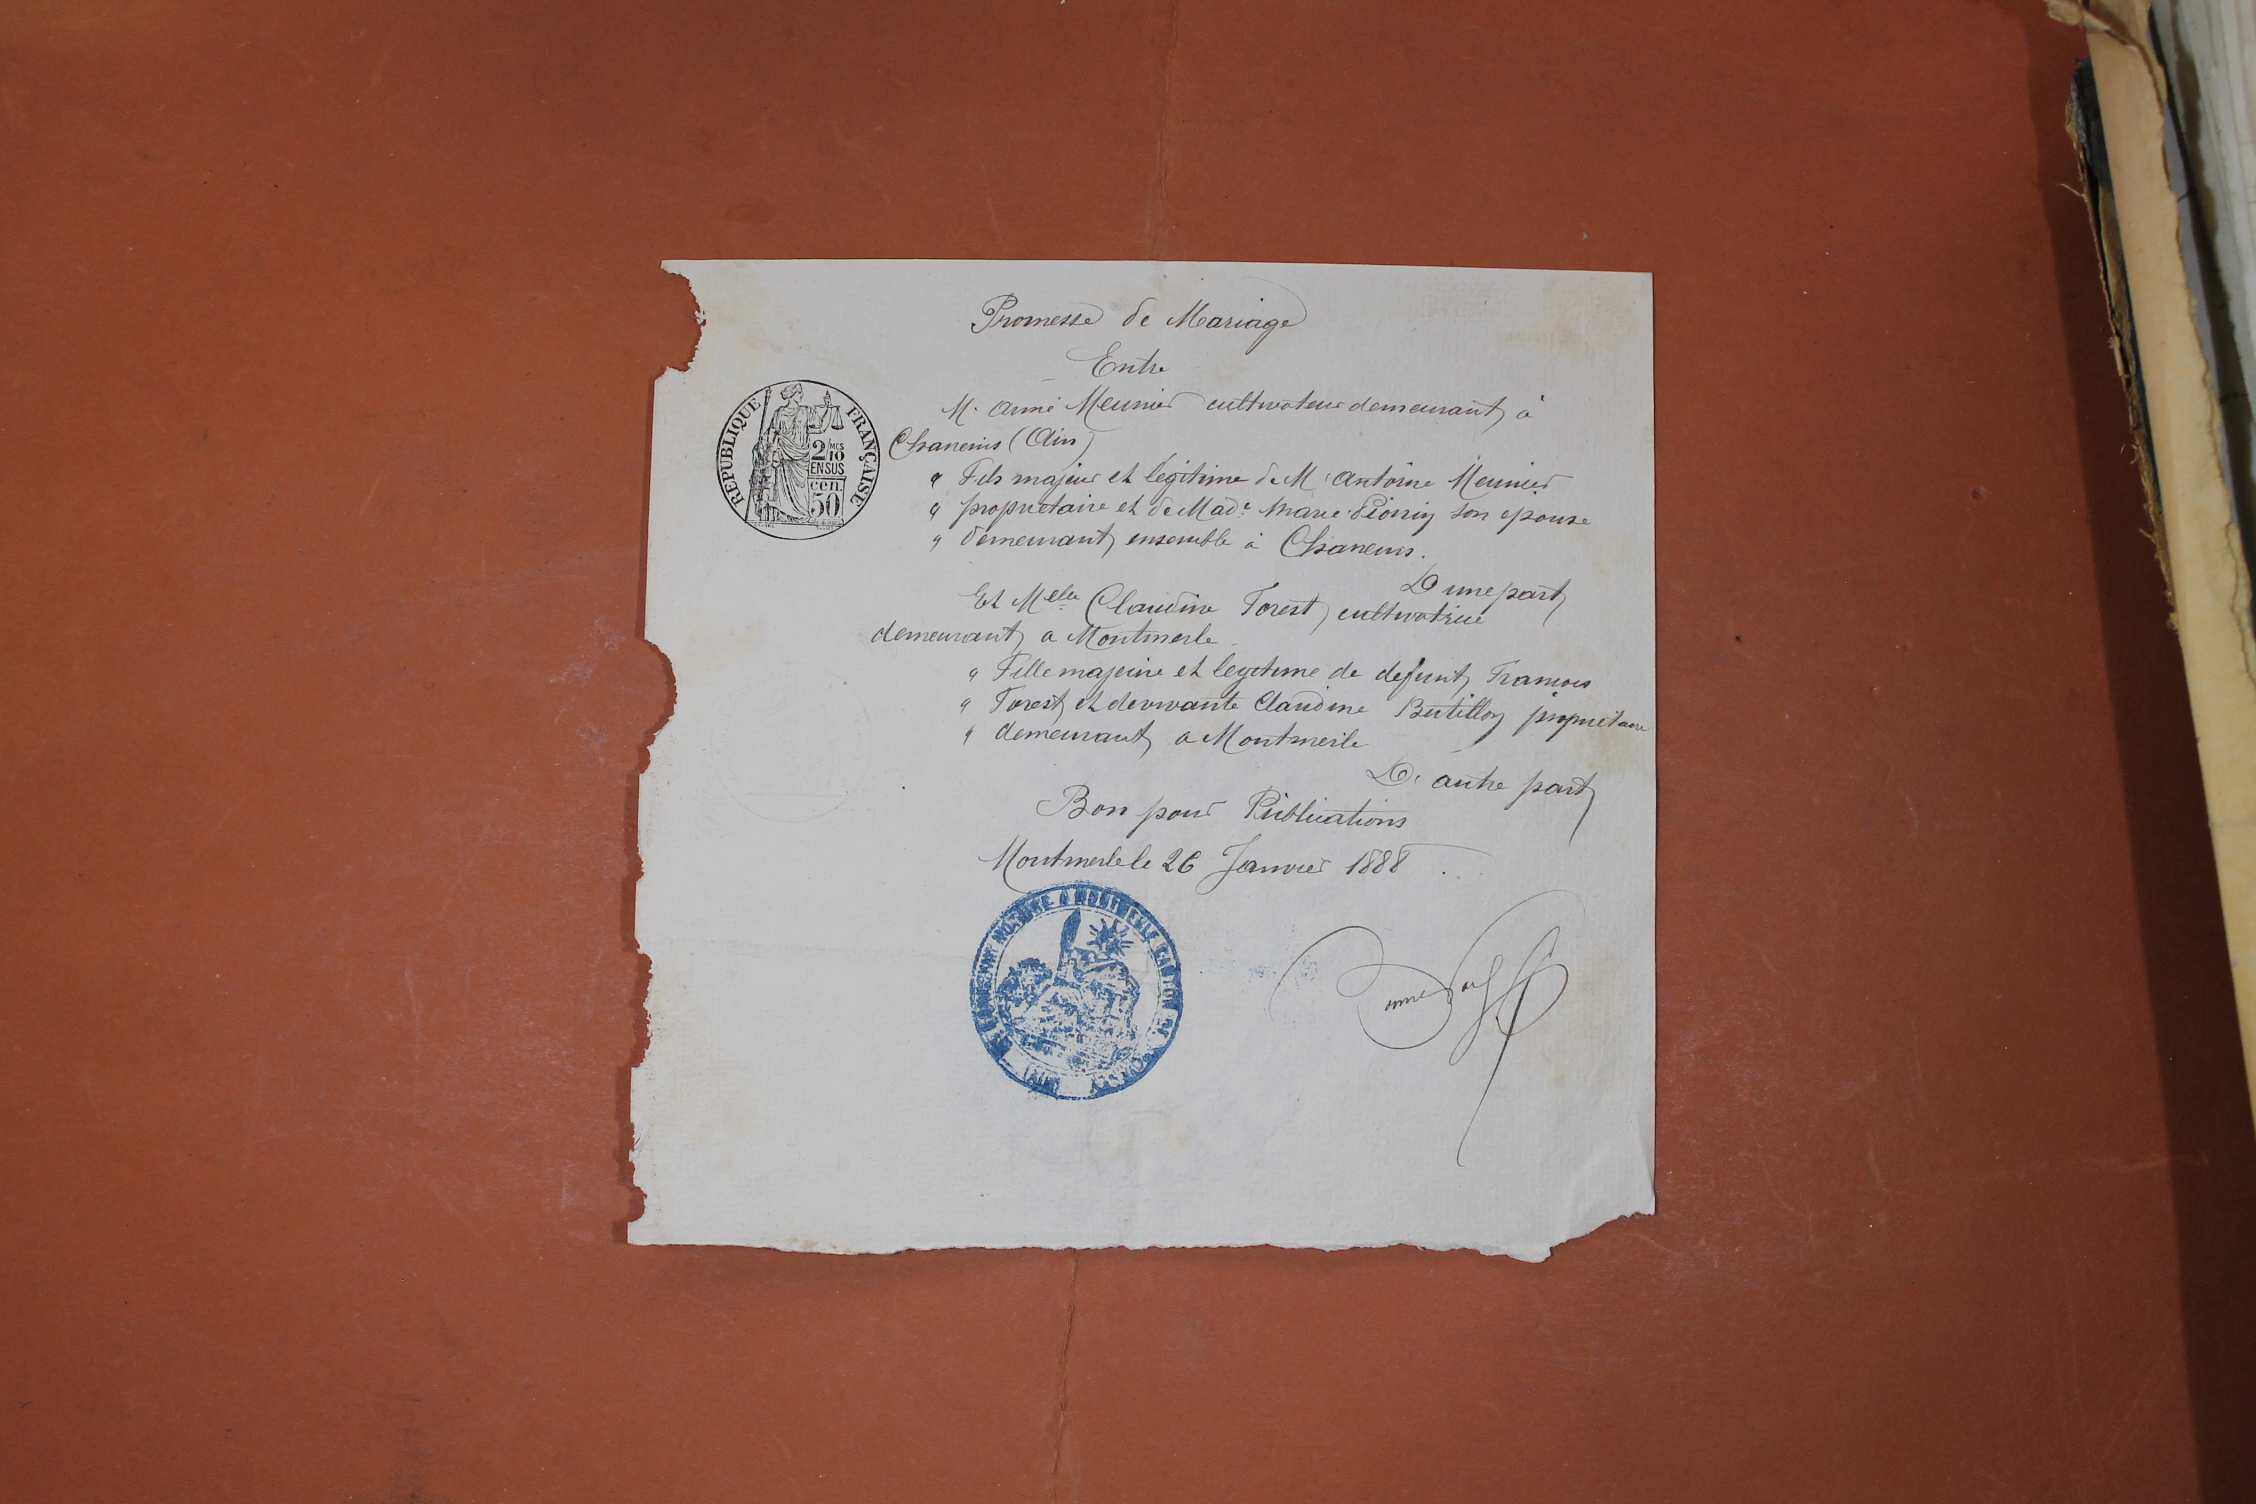 Promesse de Mariage
Entre
M. Aimé Meunier cultivateur demeurant à
Chaneins (Ain)
" Fils majeur et légitime de M. Antoine Meunier
" propriétaire et de Made Marie son epouse
" demeurant ensemble à Chaneins.
D'une part
Et Melle Claudine Forest cultivatrice
demeurant a Montmerle
" Fille majeure et legitime de defunt Francois
" Forest et de vivante Claudine Butillon propriétaire
" demeurant a Montmerle
D'autre part
Bon pour Publications
Montmerle le 26 Janvier 1888
RÉPUBLIQUE FRANÇAISE
2/10 MES
EN SUS
50 cen.
NOTAIRE A MONTMERLE CANTON DE
(AIN)